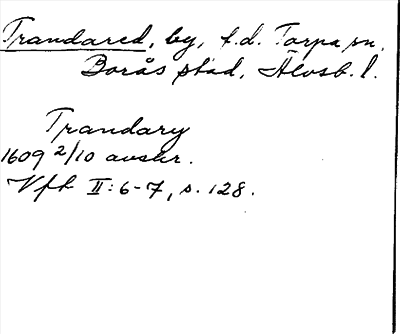 Trandared, by, f.d. Torpa sn,
Borås stad, Älvsb. l.
Trandary
1609 2/10 avskr.
Vfk II:6-7, s. 128.